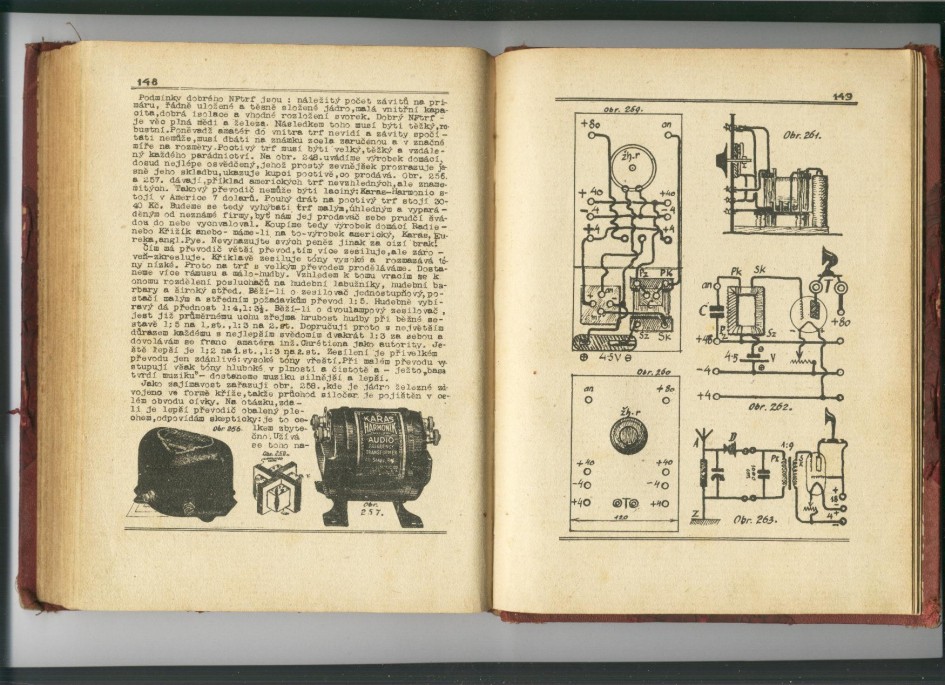 148
Podmínky dobrého NFtrf jsou : náležitý počet závitů na pri-
máru, řádně uložené a těsně složené jádro,malá vnitřní kapa-
cita,dobrá isolace a vhodné rozložení svorek. Dobrý NFtrf -
je věc plná mědi a železa. Následkem toho musí býti těžký,ro-
bustní.Poněvadž amatér do vnitra trf nevidí a závity spočí-
tati nemůže,musí dbáti na známku zcela zaručenou a v značné
míře na rozměry.Poctivý trf musí býti velký,těžký a vzdále-
ný každého parádnictví. Na obr. 248.uvádíme výrobek domácí,
dosud nejlépe osvědčený,jehož prostý zevnějšek prozrazuje je-
sně jeho skladbu,ukazuje kupci poctivě,co prodává. Obr. 256.
a 257. dávají,příklad amerických trf nevzhledných,ale zname-
nitých. Takový převodič nemůže býti laciný:Karas-Harmonic s-
tojí v Americe 7 dolarů. Pouhý drát na poctivý trf stojí 30-
40 Kč. Budeme se tedy vyhýbati trf malým,úhledným a vypará-
děným od neznámé firmy,byť nám jej prodavač sebe prudčí švá-
dou do nebe vychvaloval. Koupíme tedy výrobek domácí Radie-
nebo Křižík anebo- máme-li na to-výrobek americký, Karas,Eu-
reka,angl.Pye. Nevyhazujte svých peněz jinak za cizí brak!
Čím má převodič větší převod,tím více zesiluje,ale záro -
veň-zkresluje. Křiklavě zesiluje tóny vysoké a rozmazává tó-
ny nízké. Proto na trf s velkým převodem proděláváme. Dosta-
neme více rámusu a málo-hudby. Vzhledem k tomu vracím se k
onomu rozdělení posluchačů na hudební labužníky, hudební ba-
rbary a široký střed. Běží-li o zesilovač jednostupňový,po-
stačí malým a středním požadavkům převod 1:5. Hudebně vybí-
ravý dá přednost 1:4,1:3½. Běží-li o dvoulampový zesilovač,
jest již průměrnému uchu zřejma hrubost hudby při běžné se-
stavě 1:5 na 1.st.,1:3 na 2.st. Dopručuji proto s největším
důrazem každému s nejlepším svědomím dvakrát 1:3 za sebou a
dovolávám se franc amatéra inž.Chrétiena jako autority. Je-
ště lepší je 1:2 na 1.st.,1:3 na 2.st. Zesílení je přívelkém
převodu jen zdánlivé:vysoké tóny vřeští.Při malém převodu vy-
stupují však tóny hluboké v plnosti a čistotě a - ježto„basa
tvrdí muziku"- dostaneme muziku silnější a lepší.
Jako zajímavost zařazuji obr. 258.,kde je jádro železné zá-
vojeno ve formě kříže,takže průchod siločar je pojištěn v ce-
lém obvodu cívky. Na otázku,zda-
li je lepší převodič obalený ple-
chem,odpovídám skepticky:je to ce-
lkem zbyte-
čno.Užívá
se toho na-
Obr 256.
Obr. 258.
KARAS
HARMONIK
AUDIO
FREQUENCY
TRANSFORMER
Obr.
257.
149
Obr. 259.
+80
an
žh.r
+40
+40
-4
-4
+4
+4
Pz
Pk
Sz
Sk
⊕ 4·5V ⊖
Obr. 260
an
+80
žh.r
+40
+40
-4
-4
+40
+40
T
180
Obr. 261.
Pk
Sk
T
C
+80
+40
Pz
Sz
4·5
V
-4
+4
Obr. 262.
A
D
1:9
Pz
Z
4
Obr. 263.